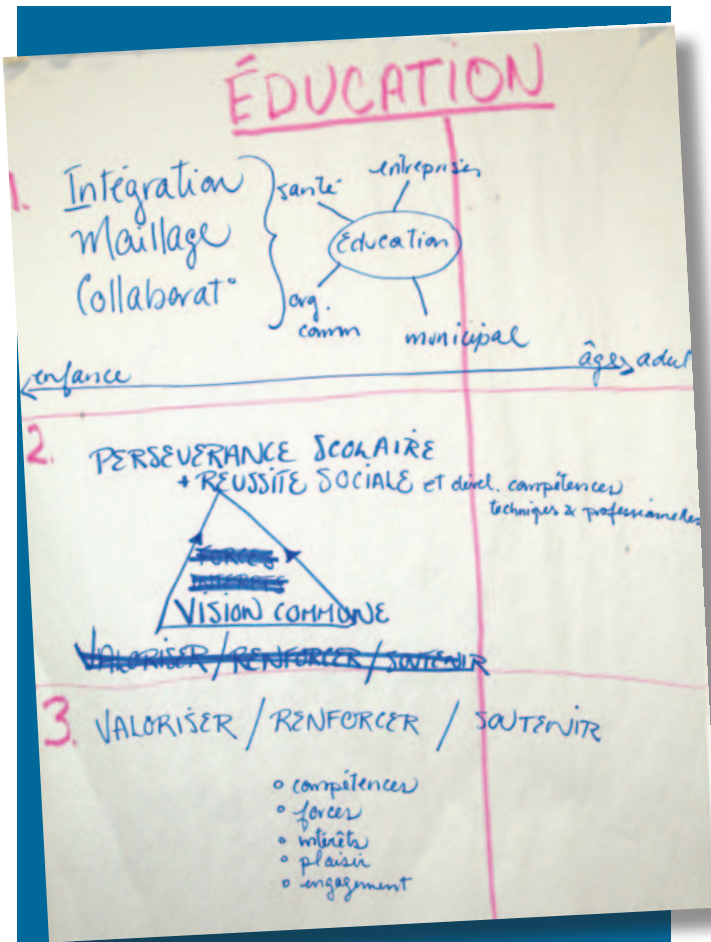 ÉDUCATION
1. Intégration
Maillage
Collaborat°
santé
entreprises
Éducation
org.
comm
municipal
enfance
âge adul
2. PERSEVERANCE SCOLAIRE
+ RÉUSSITE SOCIALE et dével. compétences
techniques & professionnelles
FORCES
INTERETS
VISION COMMUNE
VALORISER / RENFORCER / SOUTENIR
3. VALORISER / RENFORCER / SOUTENIR
o compétences
o forces
o intérêts
o plaisir
o engagement